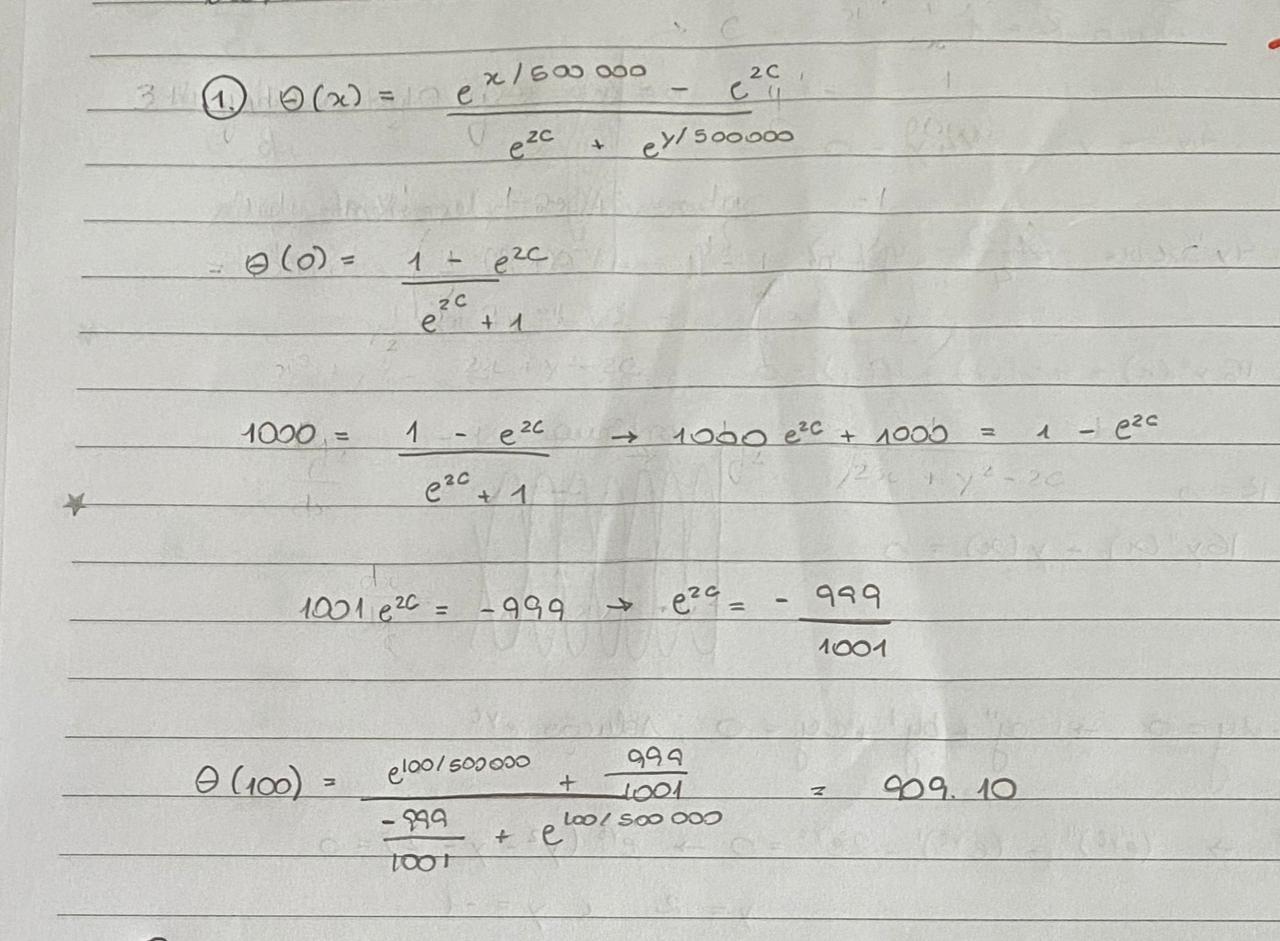 1. θ(x) = (e^{x/500000} - e^{2C}) / (e^{2C} + e^{y/500000})
θ(0) = (1 - e^{2C}) / (e^{2C} + 1)
1000 = (1 - e^{2C}) / (e^{2C} + 1) → 1000 e^{2C} + 1000 = 1 - e^{2C}
1001 e^{2C} = -999 → e^{2C} = - 999/1001
θ(100) = (e^{100/500000} + 999/1001) / (-999/1001 + e^{100/500000}) = 909.10